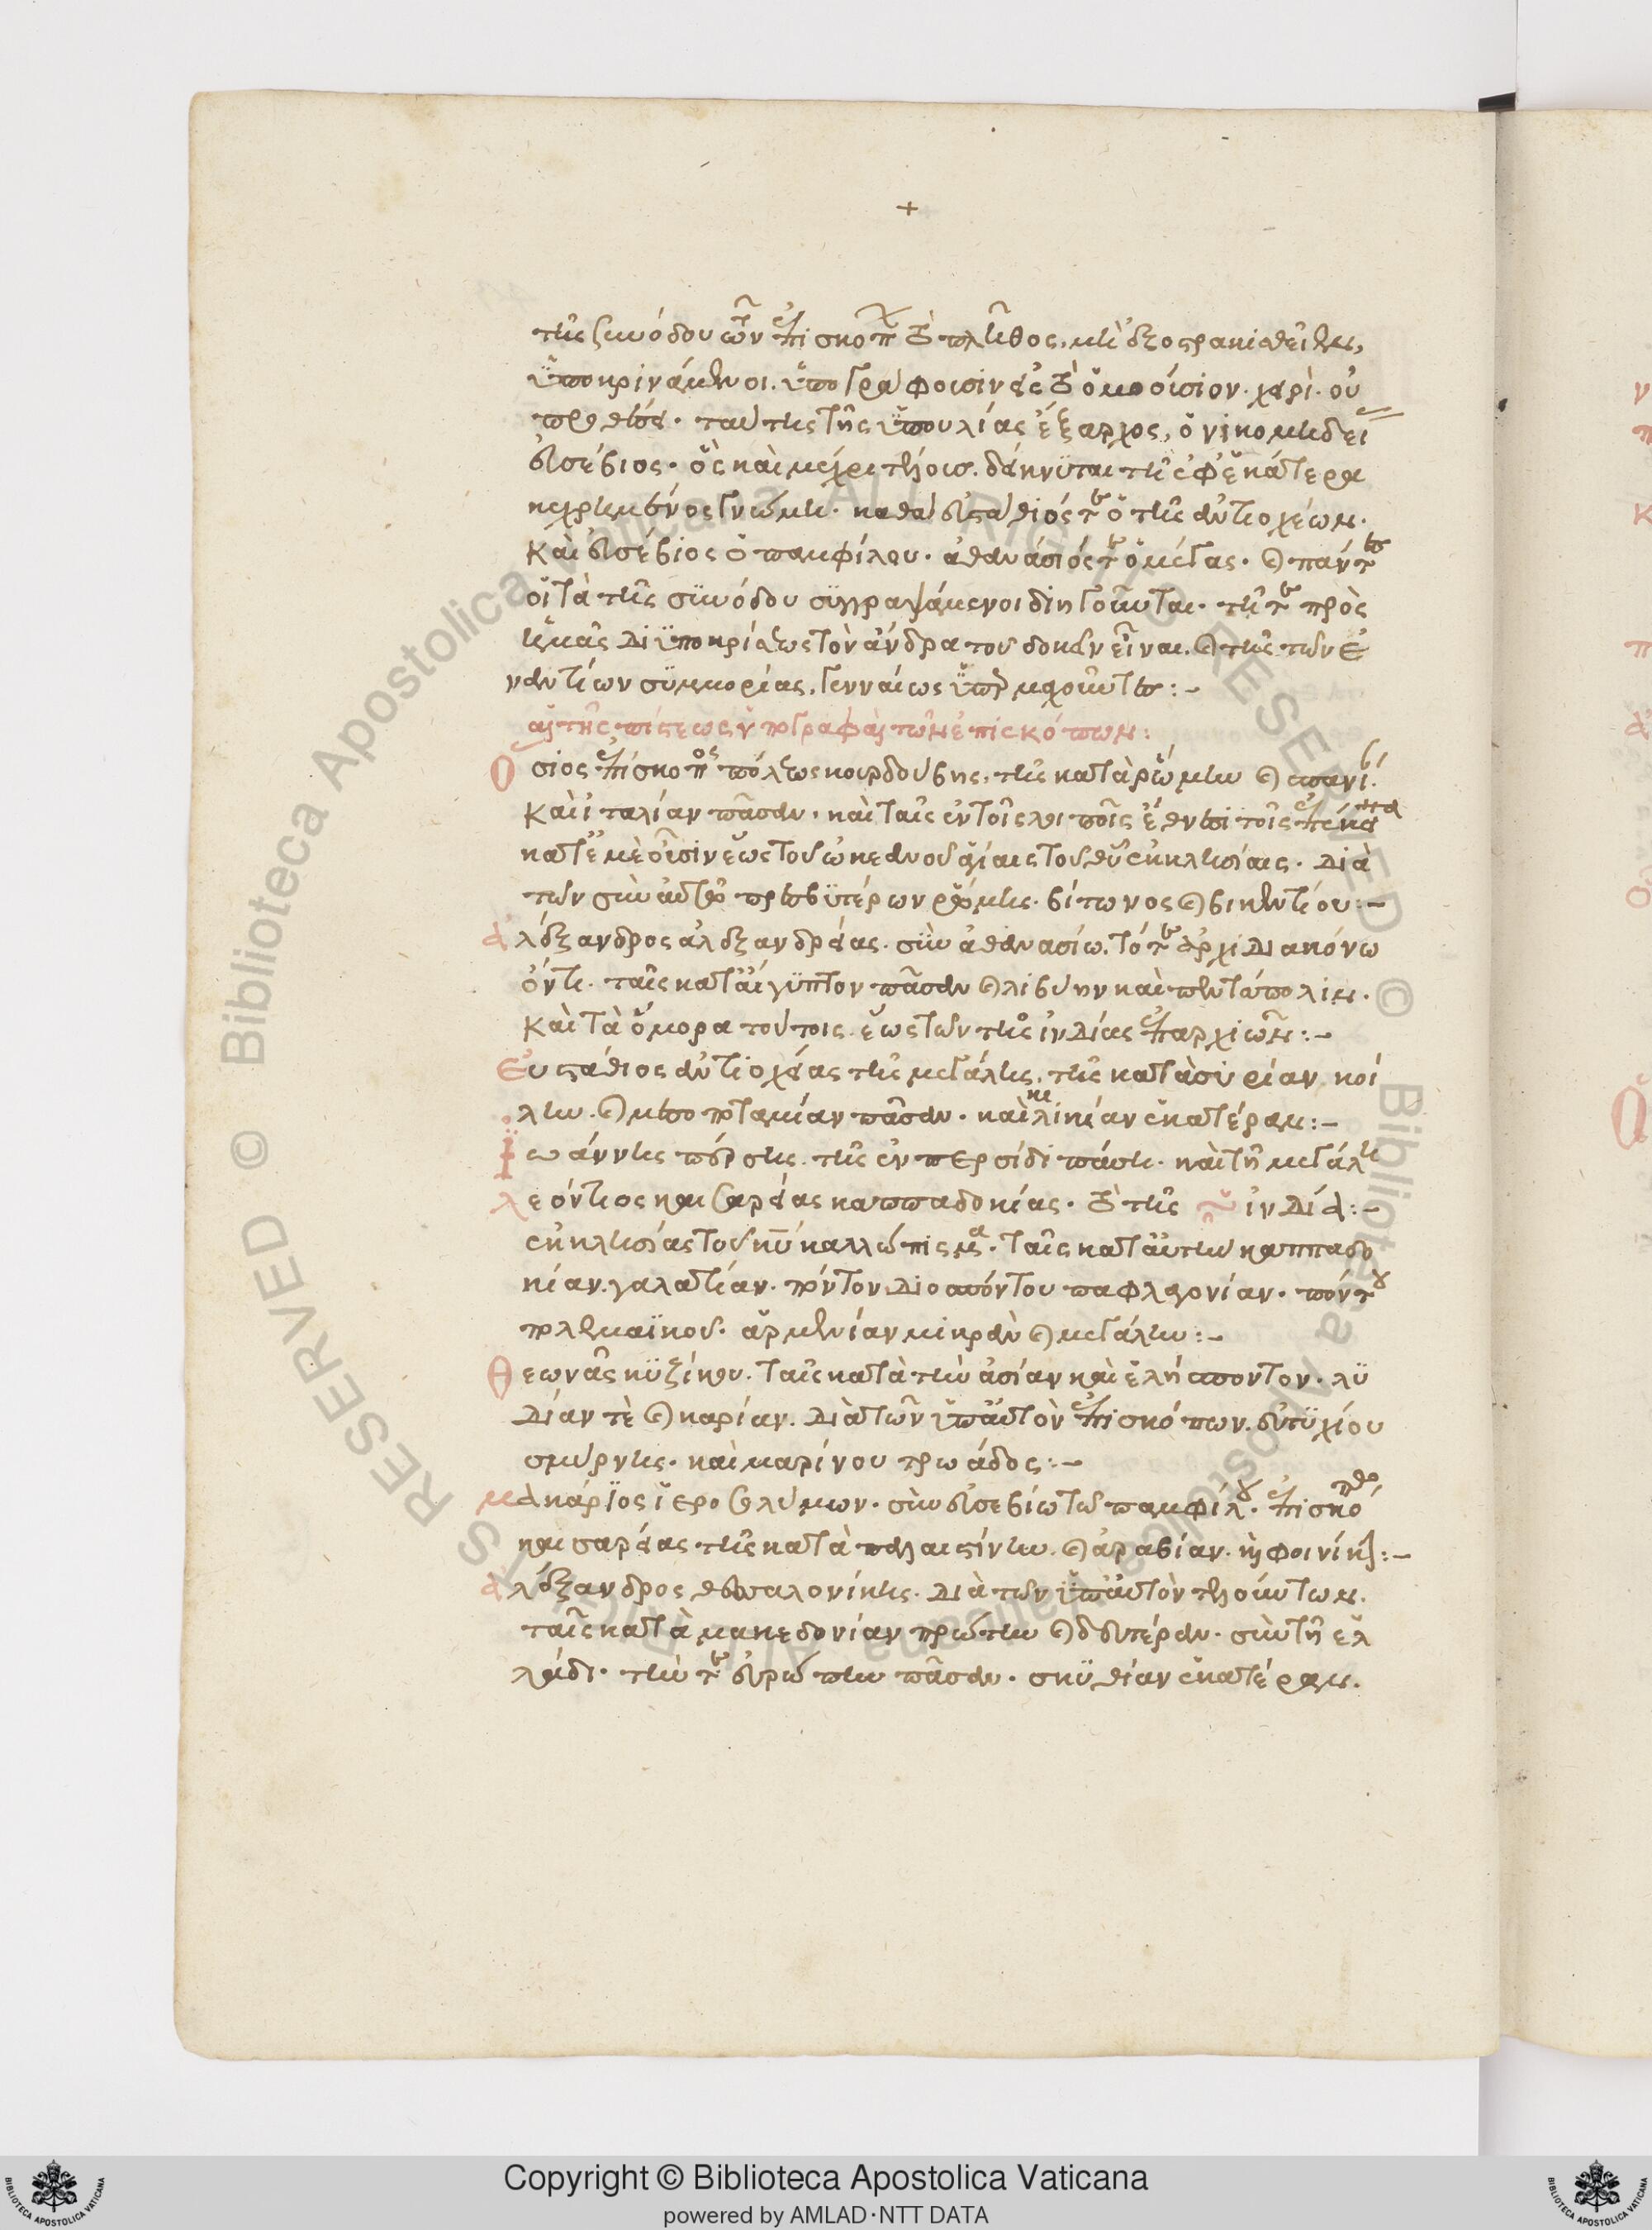 +
τῆς συνόδου τῶν ἐπισκόπων τὸ πλῆθος, μὴ ἐξοστρακισθεῖεν,
ὑποκρινάμενοι. ὑπογράφουσιν εἰς τὸ ὁμοούσιον. χάρι. οὐ
ταύτης τῆς ὑπουλίας ἔξαρχος, ὁ νικομηδεί
εὐσέβιος. ὃς καὶ μέχρι τέλους. δείκνυται τῆς ἐφ' ἑκάτερα
κεχρημένος γνώμη. καθὰ εὐστάθιός τε ὁ τῆς ἀντιοχέων.
Καὶ εὐσέβιος ὁ παμφίλου. ἀθανάσιός τε ὁ μέγας. καὶ πάντες
οἱ τὰ τῆς συνόδου συγγραψάμενοι διηγοῦνται. τῆς τε πρὸς
ἡμᾶς δι' ὑποκρίσεως τὸν ἄνδρα τοῦ δοκεῖν εἶναι. καὶ τῆς τῶν ἐ
ναντίων συμμορίας, γενναίως ὑπερμαχοῦντες :-
αἱ τῆς πίστεως ὑπογραφαὶ τῶν ἐπισκόπων :
Οσιος ἐπίσκοπος πόλεως κουρδούβης, τῆς κατὰ ῥώμην καὶ σπανί.
Καὶ ἰταλίαν πᾶσαν. καὶ ταῖς ἐν τοῖς λοιποῖς ἔθνεσι τοῖς ἐπέκεινα
κατ' ἐμὲ οὖσιν ἕως τοῦ ὠκεανοῦ ἁγίαις τοῦ θῦ ἐκκλησίαις. διὰ
τῶν σὺν αὐτῷ πρεσβυτέρων ῥώμης. βίτωνος καὶ βικεντίου :-
ἀλέξανδρος ἀλεξανδρείας. σὺν ἀθανασίω. τότε ἀρχιδιακόνω
ὄντι. ταῖς κατ' αἴγυπτον πᾶσαν καὶ λιβύην καὶ πεντάπολιν.
Καὶ τὰ ὅμορα τούτοις ἕως τῶν τῆς ἰνδίας ἐπαρχιῶν :-
Ευστάθιος ἀντιοχείας τῆς μεγάλης, τῆς κατὰ συρίαν κοί
λην. καὶ μεσοποταμίαν πᾶσαν. καὶ κιλικίαν ἑκατέραν :-
Ἰωάννης πέρσης. τῆς ἐν περσίδι πάση. καὶ τῆ μεγάλη
λεόντιος καισαρείας καππαδοκίας. τὸ τῆς ἰνδία :-
ἐκκλησίας τοῦ κῦ καλλώπισμα. ταῖς κατ' αὐτὴν καππαδο
κίαν. γαλατίαν. πόντον διοσπόντου παφλαγονίαν. πόντου
πολεμαϊκοῦ. ἀρμενίαν μικρὰν καὶ μεγάλην :-
Θεωνᾶς κυζίκου. ταῖς κατὰ τὴν ἀσίαν καὶ ἑλήσποντον. λυ
δίαν τὲ καὶ καρίαν. διὰ τῶν ὑπ' αὐτὸν ἐπισκόπων. εὐτυχίου
σμύρνης. καὶ μαρίνου τρωάδος :-
μακάριος ἱεροσολύμων. σὺν εὐσεβίω τῶ παμφίλου. ἐπισκόπω
καισαρείας τῆς κατὰ παλαιστίνην. καὶ ἀραβίαν. καὶ φοινίκην :-
ἀλέξανδρος θεσσαλονίκης. διὰ τῶν ὑπ' αὐτὸν τελούντων.
ταῖς κατὰ μακεδονίαν πρώτην καὶ δευτέραν. σὺν τῆ ἑλ
λάδι. τήν τε εὐρώπην πᾶσαν. σκυθίαν ἑκατέραν.
© Biblioteca Apostolica Vaticana ALL RIGHTS RESERVED
Copyright © Biblioteca Apostolica Vaticana
powered by AMLAD·NTT DATA
BIBLIOTECA APOSTOLICA VATICANA
BIBLIOTECA APOSTOLICA VATICANA